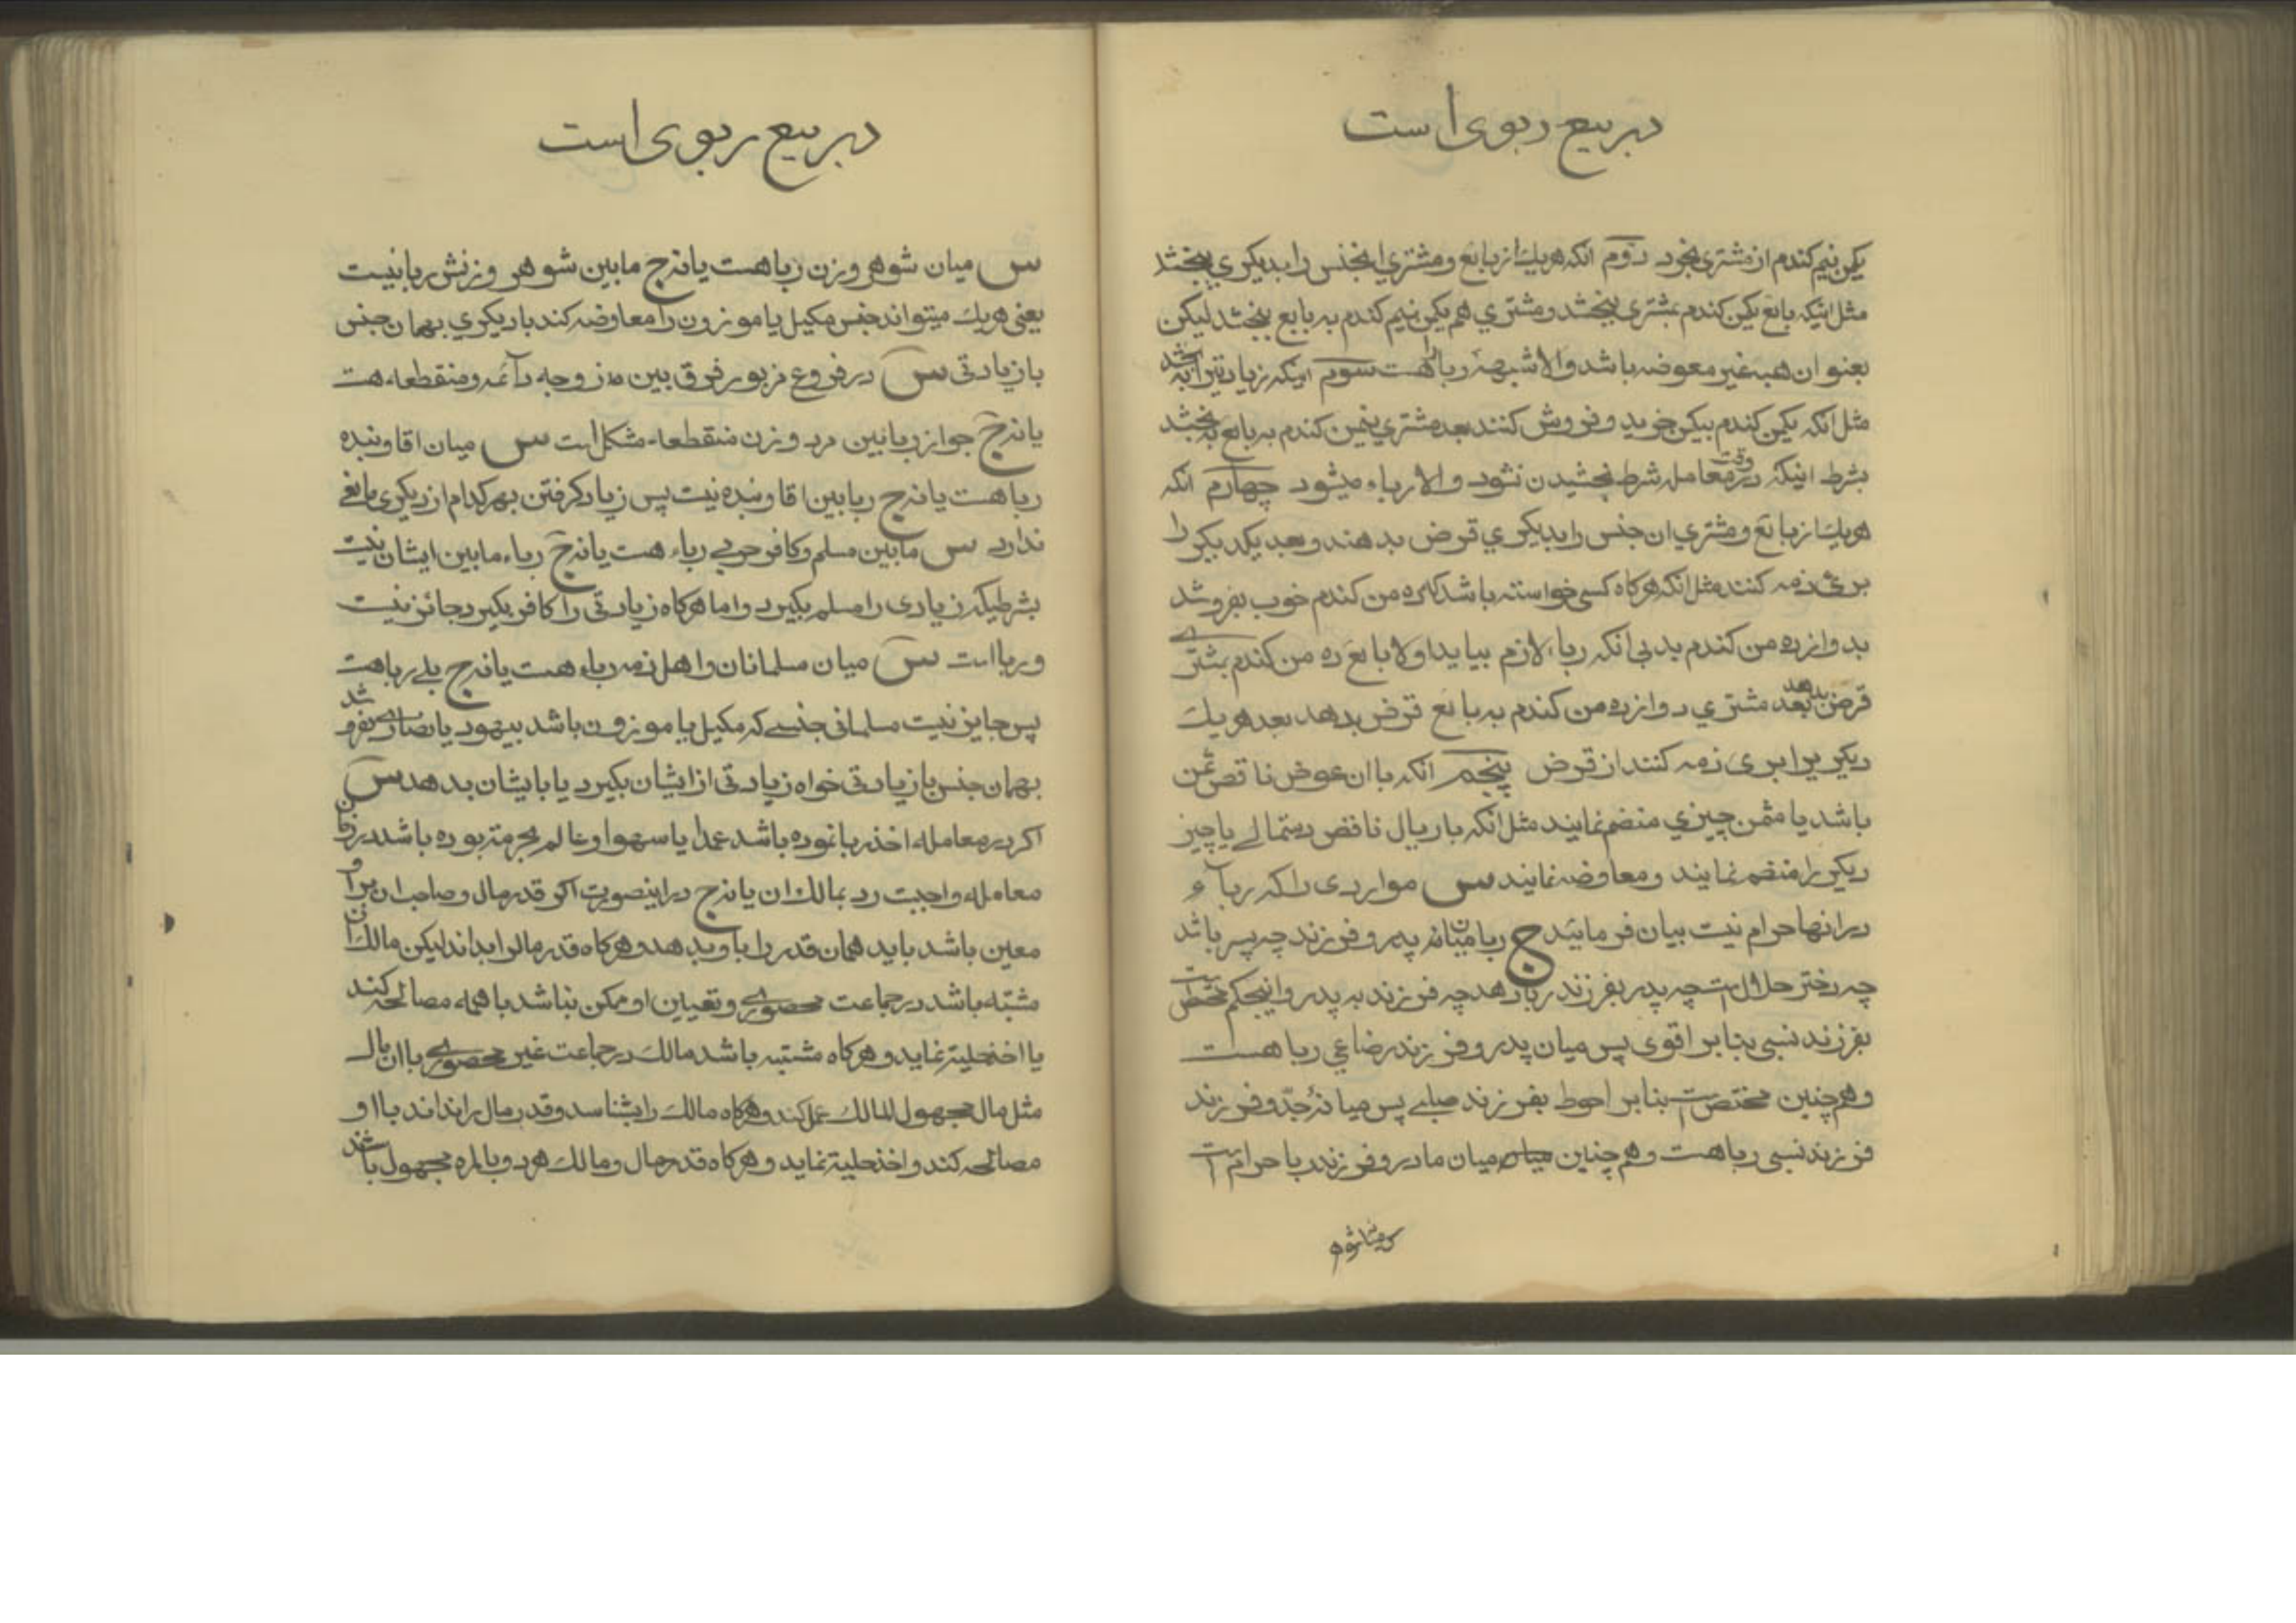 در بیع ربوی است
یکمن نیم کندم از مشتری بخرد دوم انکه هریك از بایع و مشتري انجنس را بدیکري ببخشد
مثل اینکه بایع یکمن کندم بمشتری ببخشد و مشتري هم یکمن نیم کندم به بایع ببخشد لیکن
بعنوان هبه غیر معوضه باشد والا شبههٴ ربا را هست سوم اینکه زیادتیرا به بخشد
مثل انکه یکمن کندم بیکمن خرید و فروش کنند بعد مشتري نیمن کندم به بایع به بخشد
بشرط اینکه در وقت معامله شرط بخشیدن نشود والا رباء میشود چهارم انکه
هریك از بایع و مشتري ان جنس را بدیکري قرض بدهند و بعد یکدیکر را
برئ ذمه کنند مثل انکه هرکاه کسی خواسته باشد که ده من کندم خوب بفروشد
بدوازده من کندم بد بی انکه رباء لازم بیاید اولا بایع ده من کندم بمشتري
قرض بدهد بعد مشتري دوازده من کندم به بایع قرض بدهد بعد هریك
دیکریرا بری ذمه کنند از قرض پنجم انکه با ان عوض ناقص ثمن
باشد یا مثمن چیزي منضم نمایند مثل انکه با ریال ناقص دستمالے یا چیز
دیکر را منضم نمایند و معاوضه نمایند س مواردی را که رباء
در انها حرام نیست بیان فرمائید ج ربا میانه پدر و فرزند چه پسر باشد
چه دختر حلال است چه پدر بفرزند ربا دهد چه فرزند به پدر و اینحکم مختص است
بفرزند نسبی بنابر اقوی پس میان پدر و فرزند رضاعي ربا هست
و هم چنین مختص است بنابر احوط بفرزند صلبے پس میانهٴ جدّ و فرزند
فرزند نسبی ربا هست و هم چنین میان میان مادر و فرزند ربا حرام است
در بیع ربوی است
س میان شوهر و زن ربا هست یا نه ج مابین شوهر و زنش ربا نیست
یعنی هریك میتواند جنس مکیل یا موزون را معاوضه کند با دیکري بهمان جنس
با زیادتی س در فروع مزبور فرق بین زوجه دائمه و منقطعه هست
یا نه ج جواز ربا بین مرد و زن منقطعه مشکل است س میان اقا و بنده
ربا هست یا نه ج ربا بین اقا و بنده نیست پس زیاد کرفتن بهر کدام از دیکری مانعے
ندارد س مابین مسلم و کافر حربے رباء هست یا نه ج رباء مابین ایشان نیست
بشرطیکه زیادی را مسلم بکیرد و اما هرکاه زیادتی را کافر بکیرد جائز نیست
و ربا است س میان مسلمانان و اهل ذمه رباء هست یا نه ج بلے ربا هست
پس جایز نیست مسلمانی جنسے که مکیل یا موزون باشد بیهود یا نصاری بفروشد
بهمان جنس با زیادتی خواه زیادتی از ایشان بکیرد یا بایشان بدهد س
اکر در معامله اخذ ربا نموده باشد عمدا یا سهوا و عالم بحرمته بوده باشد در زمان
معامله واجبست رد بمالك ان یا نه ج در اینصورت اکر قدر مال و صاحب ان براو
معین باشد باید همان قدر را باو بدهد و هرکاه قدر مال را بداند لیکن مالك ان
مشتبه باشد در جماعت محصورے و تعیین او ممکن نباشد با همه مصالحه کند
یا اخذ حلیة نماید و هرکاه مشتبه باشد مالك در جماعت غیر محصورے با ان مال
مثل مال مجهول المالك عمل کند و هرکاه مالك را بشناسد و قدر مال را نداند با او
مصالحه کند و اخذ حلیة نماید و هرکاه قدر مال و مالك هر دو بالمره مجهول باشد